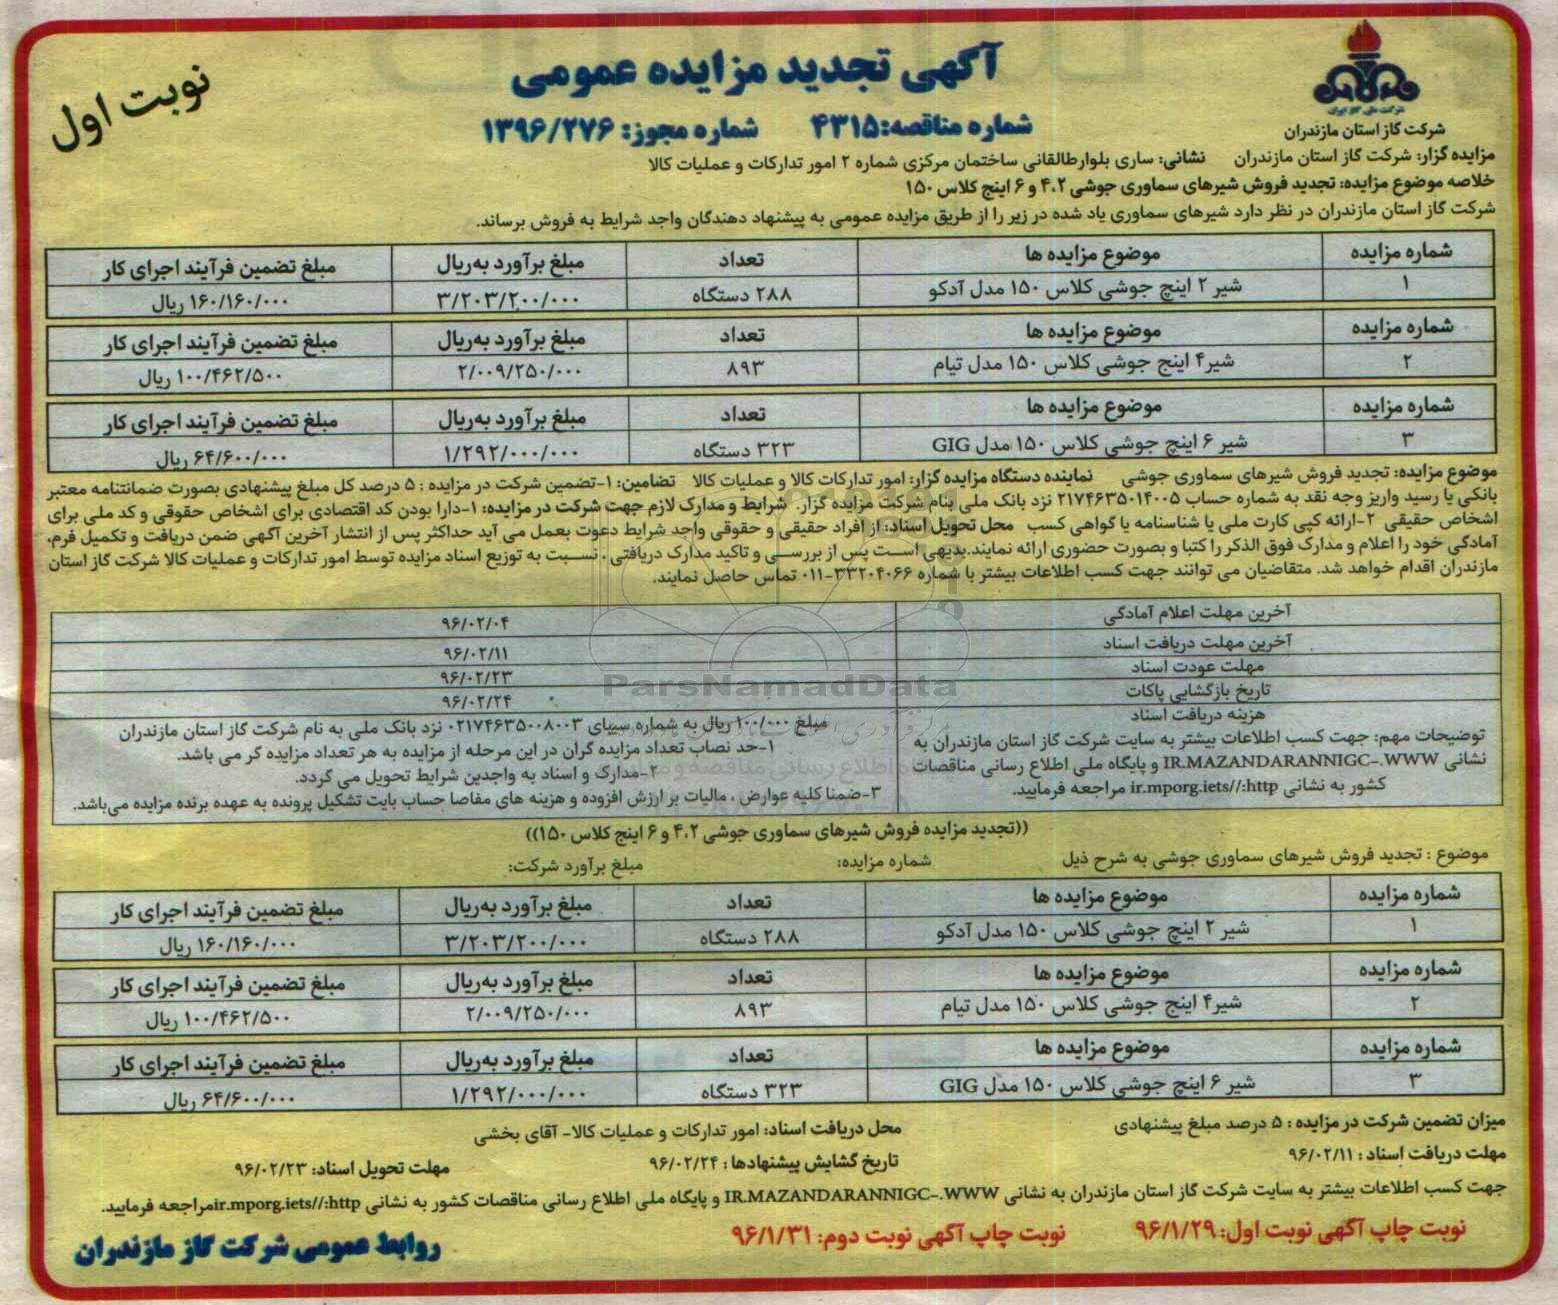 شرکت ملی گاز ایران
شرکت گاز استان مازندران
آگهی تجدید مزایده عمومی
نوبت اول
شماره مناقصه:۴۳۱۵ شماره مجوز: ۱۳۹۶/۲۷۶
مزایده گزار: شرکت گاز استان مازندران نشانی: ساری بلوارطالقانی ساختمان مرکزی شماره ۲ امور تدارکات و عملیات کالا
خلاصه موضوع مزایده: تجدید فروش شیرهای سماوری جوشی ۴،۲ و ۶ اینچ کلاس ۱۵۰
شرکت گاز استان مازندران در نظر دارد شیرهای سماوری یاد شده در زیر را از طریق مزایده عمومی به پیشنهاد دهندگان واجد شرایط به فروش برساند.
شماره مزایده موضوع مزایده ها تعداد مبلغ برآورد به‌ریال مبلغ تضمین فرآیند اجرای کار
۱ شیر ۲ اینچ جوشی کلاس ۱۵۰ مدل آدکو ۲۸۸ دستگاه ۳/۲۰۳/۲۰۰/۰۰۰ ۱۶۰/۱۶۰/۰۰۰ ریال
شماره مزایده موضوع مزایده ها تعداد مبلغ برآورد به‌ریال مبلغ تضمین فرآیند اجرای کار
۲ شیر۴ اینچ جوشی کلاس ۱۵۰ مدل تیام ۸۹۳ ۲/۰۰۹/۲۵۰/۰۰۰ ۱۰۰/۴۶۲/۵۰۰ ریال
شماره مزایده موضوع مزایده ها تعداد مبلغ برآورد به‌ریال مبلغ تضمین فرآیند اجرای کار
۳ شیر ۶ اینچ جوشی کلاس ۱۵۰ مدل GIG ۳۲۳ دستگاه ۱/۲۹۲/۰۰۰/۰۰۰ ۶۴/۶۰۰/۰۰۰ ریال
موضوع مزایده: تجدید فروش شیرهای سماوری جوشی نماینده دستگاه مزایده گزار: امور تدارکات کالا و عملیات کالا تضامین: ۱-تضمین شرکت در مزایده : ۵ درصد کل مبلغ پیشنهادی بصورت ضمانتنامه معتبر
بانکی یا رسید واریز وجه نقد به شماره حساب ۲۱۷۴۶۳۵۰۱۴۰۰۵ نزد بانک ملی بنام شرکت مزایده گزار. شرایط و مدارک لازم جهت شرکت در مزایده: ۱-دارا بودن کد اقتصادی برای اشخاص حقوقی و کد ملی برای
اشخاص حقیقی ۲-ارائه کپی کارت ملی یا شناسنامه یا گواهی کسب محل تحویل اسناد: از افراد حقیقی و حقوقی واجد شرایط دعوت بعمل می آید حداکثر پس از انتشار آخرین آگهی ضمن دریافت و تکمیل فرم،
آمادگی خود را اعلام و مدارک فوق الذکر را کتبا و بصورت حضوری ارائه نمایند.بدیهی است پس از بررسی و تاکید مدارک دریافتی ، نسبت به توزیع اسناد مزایده توسط امور تدارکات و عملیات کالا شرکت گاز استان
مازندران اقدام خواهد شد. متقاضیان می توانند جهت کسب اطلاعات بیشتر با شماره ۳۳۲۰۴۰۶۶-۰۱۱ تماس حاصل نمایند.
آخرین مهلت اعلام آمادگی ۹۶/۰۲/۰۴
آخرین مهلت دریافت اسناد ۹۶/۰۲/۱۱
مهلت عودت اسناد ۹۶/۰۲/۲۳
تاریخ بازگشایی پاکات ۹۶/۰۲/۲۴
هزینه دریافت اسناد مبلغ ۱۰۰/۰۰۰ ریال به شماره سیبای ۰۲۱۷۴۶۳۵۰۰۸۰۰۳ نزد بانک ملی به نام شرکت گاز استان مازندران
توضیحات مهم: جهت کسب اطلاعات بیشتر به سایت شرکت گاز استان مازندران به
نشانی IR.MAZANDARANNIGC-.WWW و پایگاه ملی اطلاع رسانی مناقصات
کشور به نشانی ir.mporg.iets//:http مراجعه فرمایید.
۱-حد نصاب تعداد مزایده گران در این مرحله از مزایده به هر تعداد مزایده گر می باشد.
۲-مدارک و اسناد به واجدین شرایط تحویل می گردد.
۳-ضمنا کلیه عوارض ، مالیات بر ارزش افزوده و هزینه های مفاصا حساب بابت تشکیل پرونده به عهده برنده مزایده می‌باشد.
ParsNamadData
((تجدید مزایده فروش شیرهای سماوری جوشی ۴،۲ و ۶ اینچ کلاس ۱۵۰))
موضوع : تجدید فروش شیرهای سماوری جوشی به شرح ذیل شماره مزایده: مبلغ برآورد شرکت:
شماره مزایده موضوع مزایده ها تعداد مبلغ برآورد به‌ریال مبلغ تضمین فرآیند اجرای کار
۱ شیر ۲ اینچ جوشی کلاس ۱۵۰ مدل آدکو ۲۸۸ دستگاه ۳/۲۰۳/۲۰۰/۰۰۰ ۱۶۰/۱۶۰/۰۰۰ ریال
شماره مزایده موضوع مزایده ها تعداد مبلغ برآورد به‌ریال مبلغ تضمین فرآیند اجرای کار
۲ شیر۴ اینچ جوشی کلاس ۱۵۰ مدل تیام ۸۹۳ ۲/۰۰۹/۲۵۰/۰۰۰ ۱۰۰/۴۶۲/۵۰۰ ریال
شماره مزایده موضوع مزایده ها تعداد مبلغ برآورد به‌ریال مبلغ تضمین فرآیند اجرای کار
۳ شیر ۶ اینچ جوشی کلاس ۱۵۰ مدل GIG ۳۲۳ دستگاه ۱/۲۹۲/۰۰۰/۰۰۰ ۶۴/۶۰۰/۰۰۰ ریال
میزان تضمین شرکت در مزایده : ۵ درصد مبلغ پیشنهادی محل دریافت اسناد: امور تدارکات و عملیات کالا- آقای بخشی
مهلت دریافت اسناد : ۹۶/۰۲/۱۱ تاریخ گشایش پیشنهادها : ۹۶/۰۲/۲۴ مهلت تحویل اسناد: ۹۶/۰۲/۲۳
جهت کسب اطلاعات بیشتر به سایت شرکت گاز استان مازندران به نشانی IR.MAZANDARANNIGC-.WWW و پایگاه ملی اطلاع رسانی مناقصات کشور به نشانی ir.mporg.iets//:http مراجعه فرمایید.
نوبت چاپ آگهی نوبت اول: ۹۶/۱/۲۹ نوبت چاپ آگهی نوبت دوم: ۹۶/۱/۳۱
روابط عمومی شرکت گاز مازندران